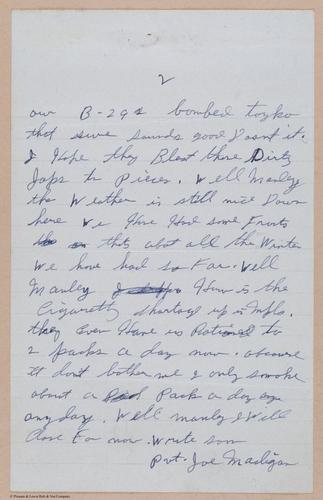 2
our B-29s bombed toyko
that sure sounds good Dosnt it.
I Hope they Blast those Dirty
Japs to Pieces. Well Manley
the Weather is still nice Down
here We Have Had some Frosts
thats abot all the Winter
We have had so Far. Well
Manley How is the
Cigaretty shortage up in Mpls.
they Even Have us Rationed to
2 packs a day now. abcourse
it dont bother me I only smoke
about a Pack a day
anyday. Well manley I Will
Close For now. Write soon
Pvt. Joe Madigan
© Putnam & Lewis Bob & You Company